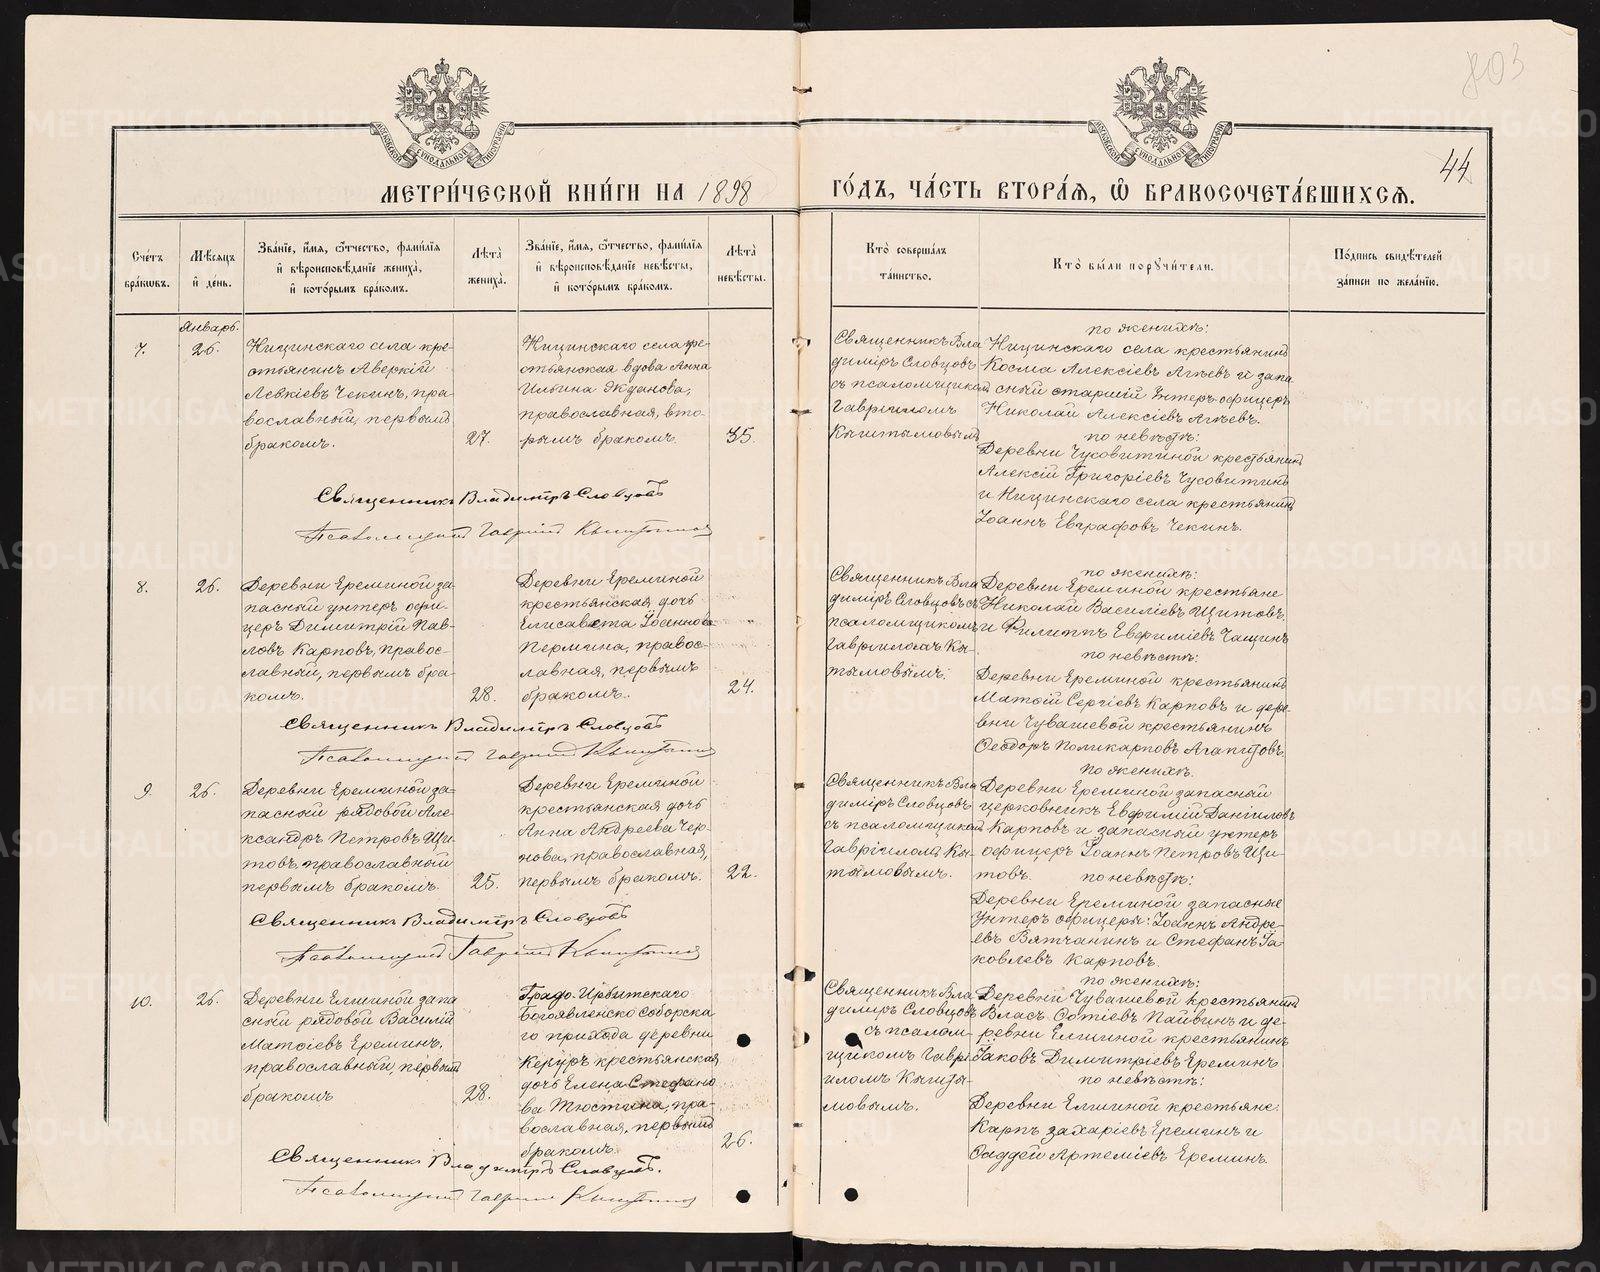 803
44
МОСКОВСКОЙ СѴНОДАЛЬНОЙ ТИПОГРАФІИ
МОСКОВСКОЙ СѴНОДАЛЬНОЙ ТИПОГРАФІИ
МЕТРИ́ЧЕСКОЙ КНИ́ГИ НА 1898 ГО́ДЪ, ЧА́СТЬ ВТОРА́Ѧ, Ѽ БРАКОСОЧЕТА́ВШИХСѦ.
Сче́тъ
бра́кѡвъ.
Мѣ́сѧцъ
и҆ де́нь.
Зва́нїе, и҆́мѧ, ѻ҆́тчество, фами́лїѧ
и҆ вѣроисповѣ́данїе жениха̀,
и҆ кото́рымъ бра́комъ.
Лѣта̀
жениха̀.
Зва́нїе, и҆́мѧ, ѻ҆́тчество, фами́лїѧ
и҆ вѣроисповѣ́данїе невѣ́сты,
и҆ кото́рымъ бра́комъ.
Лѣта̀
невѣ́сты.
Кто̀ соверша́лъ
та́инство.
Кто̀ бы́ли порꙋчи́тели.
По́дпись свидѣ́телей
за́писи по жела́нїю.
Январь.
7.
26.
Ницинскаго села кре-
стьянинъ Аверкій
Левкіевъ Чекинъ, пра-
вославный, первымъ
бракомъ.
27.
Ницинскаго села кре-
стьянская вдова Анна
Ильина Жданова,
православная, вто-
рымъ бракомъ.
35.
Священникъ Вла
диміръ Словцовъ
съ псаломщикомъ
Гавріиломъ
Кыштымовымъ
по женихѣ:
Ницинскаго села крестьянинъ
Косма Алексіевъ Агѣевъ и запа
сный старшій унтеръ-офицеръ
Николай Алексіевъ Агѣевъ.
по невѣстѣ:
Деревни Чусовитиной крестьянинъ
Алексій Григоріевъ Чусовитинъ
и Ницинскаго села крестьянинъ
Іоаннъ Евграфовъ Чекинъ.
Священникъ Владиміръ Словцовъ
Псаломщикъ Гавріилъ Кыштымов
8.
26.
Деревни Ереминой за-
пасный унтеръ офи-
церъ Димитрій Пав-
ловъ Карповъ, правос-
лавный, первымъ бра-
комъ.
28.
Деревни Ереминой
крестьянская дочь
Елисавета Іосифова
Пермина, правос-
лавная, первымъ
бракомъ.
24.
Священникъ Вла
диміръ Словцовъ съ
псаломщикомъ
Гавріиломъ Кы-
тымовымъ.
по женихѣ:
Деревни Ереминой крестьяне
Николай Василіевъ Щитовъ
и Филиппъ Евфиміевъ Чащинъ
по невѣстѣ:
Деревни Ереминой крестьянинъ
Матѳій Сергіевъ Карповъ и дере-
вни Чувашевой крестьянинъ
Ѳеодоръ Поликарповъ Агапитовъ.
Священникъ Владиміръ Словцовъ
Псаломщикъ Гавріилъ Кыштымов
9.
26.
Деревни Ереминой за-
пасный рядовой Але
ксандръ Петровъ Щи-
товъ, православный
первымъ бракомъ.
25.
Деревни Ереминой
крестьянская дочь
Анна Андреева Чер-
нова, православная,
первымъ бракомъ.
22.
Священникъ Вла
диміръ Словцовъ
съ псаломщикомъ
Гавріиломъ Кы-
тымовымъ.
По женихѣ.
Деревни Ереминой запасный
церковникъ Евфимій Даніиловъ
Карповъ и запасный унтеръ
офицеръ Іоаннъ Петровъ Щи-
товъ. по невѣстѣ:
Деревни Ереминой запасные
Унтеръ офицеры: Іоаннъ Андре-
евъ Вятчанинъ и Стефанъ Іа
ковлевъ Карповъ.
Священникъ Владиміръ Словцовъ
Псаломщикъ Гавріилъ Кыштымов
10.
26.
Деревни Елшиной запа
сный рядовой Василій
Матѳіевъ Ереминъ,
православный, первымъ
бракомъ
28.
Градо-Ирбитскаго
Богоявленско Соборска
го прихода деревни
Кекуръ крестьянская
дочь Елена Стефано
ва Тюстина, пра-
вославная, первымъ
бракомъ.
26.
Священникъ Вла
диміръ Словцовъ
съ псалом-
щикомъ Гаврі
иломъ Кышты-
мовымъ.
по женихѣ:
Деревни Чувашевой крестьянинъ
Власъ Фотіевъ Пайвинъ и де-
ревни Елшиной крестьянинъ
Іаковъ Димитріевъ Ереминъ
по невѣстѣ:
Деревни Елшиной крестьяне:
Карпъ Захаріевъ Ереминъ и
Ѳаддей Артеміевъ Ереминъ.
Священникъ Владиміръ Словцовъ.
Псаломщикъ Гавріилъ Кыштымов
METRIKI.GASO-URAL.RU